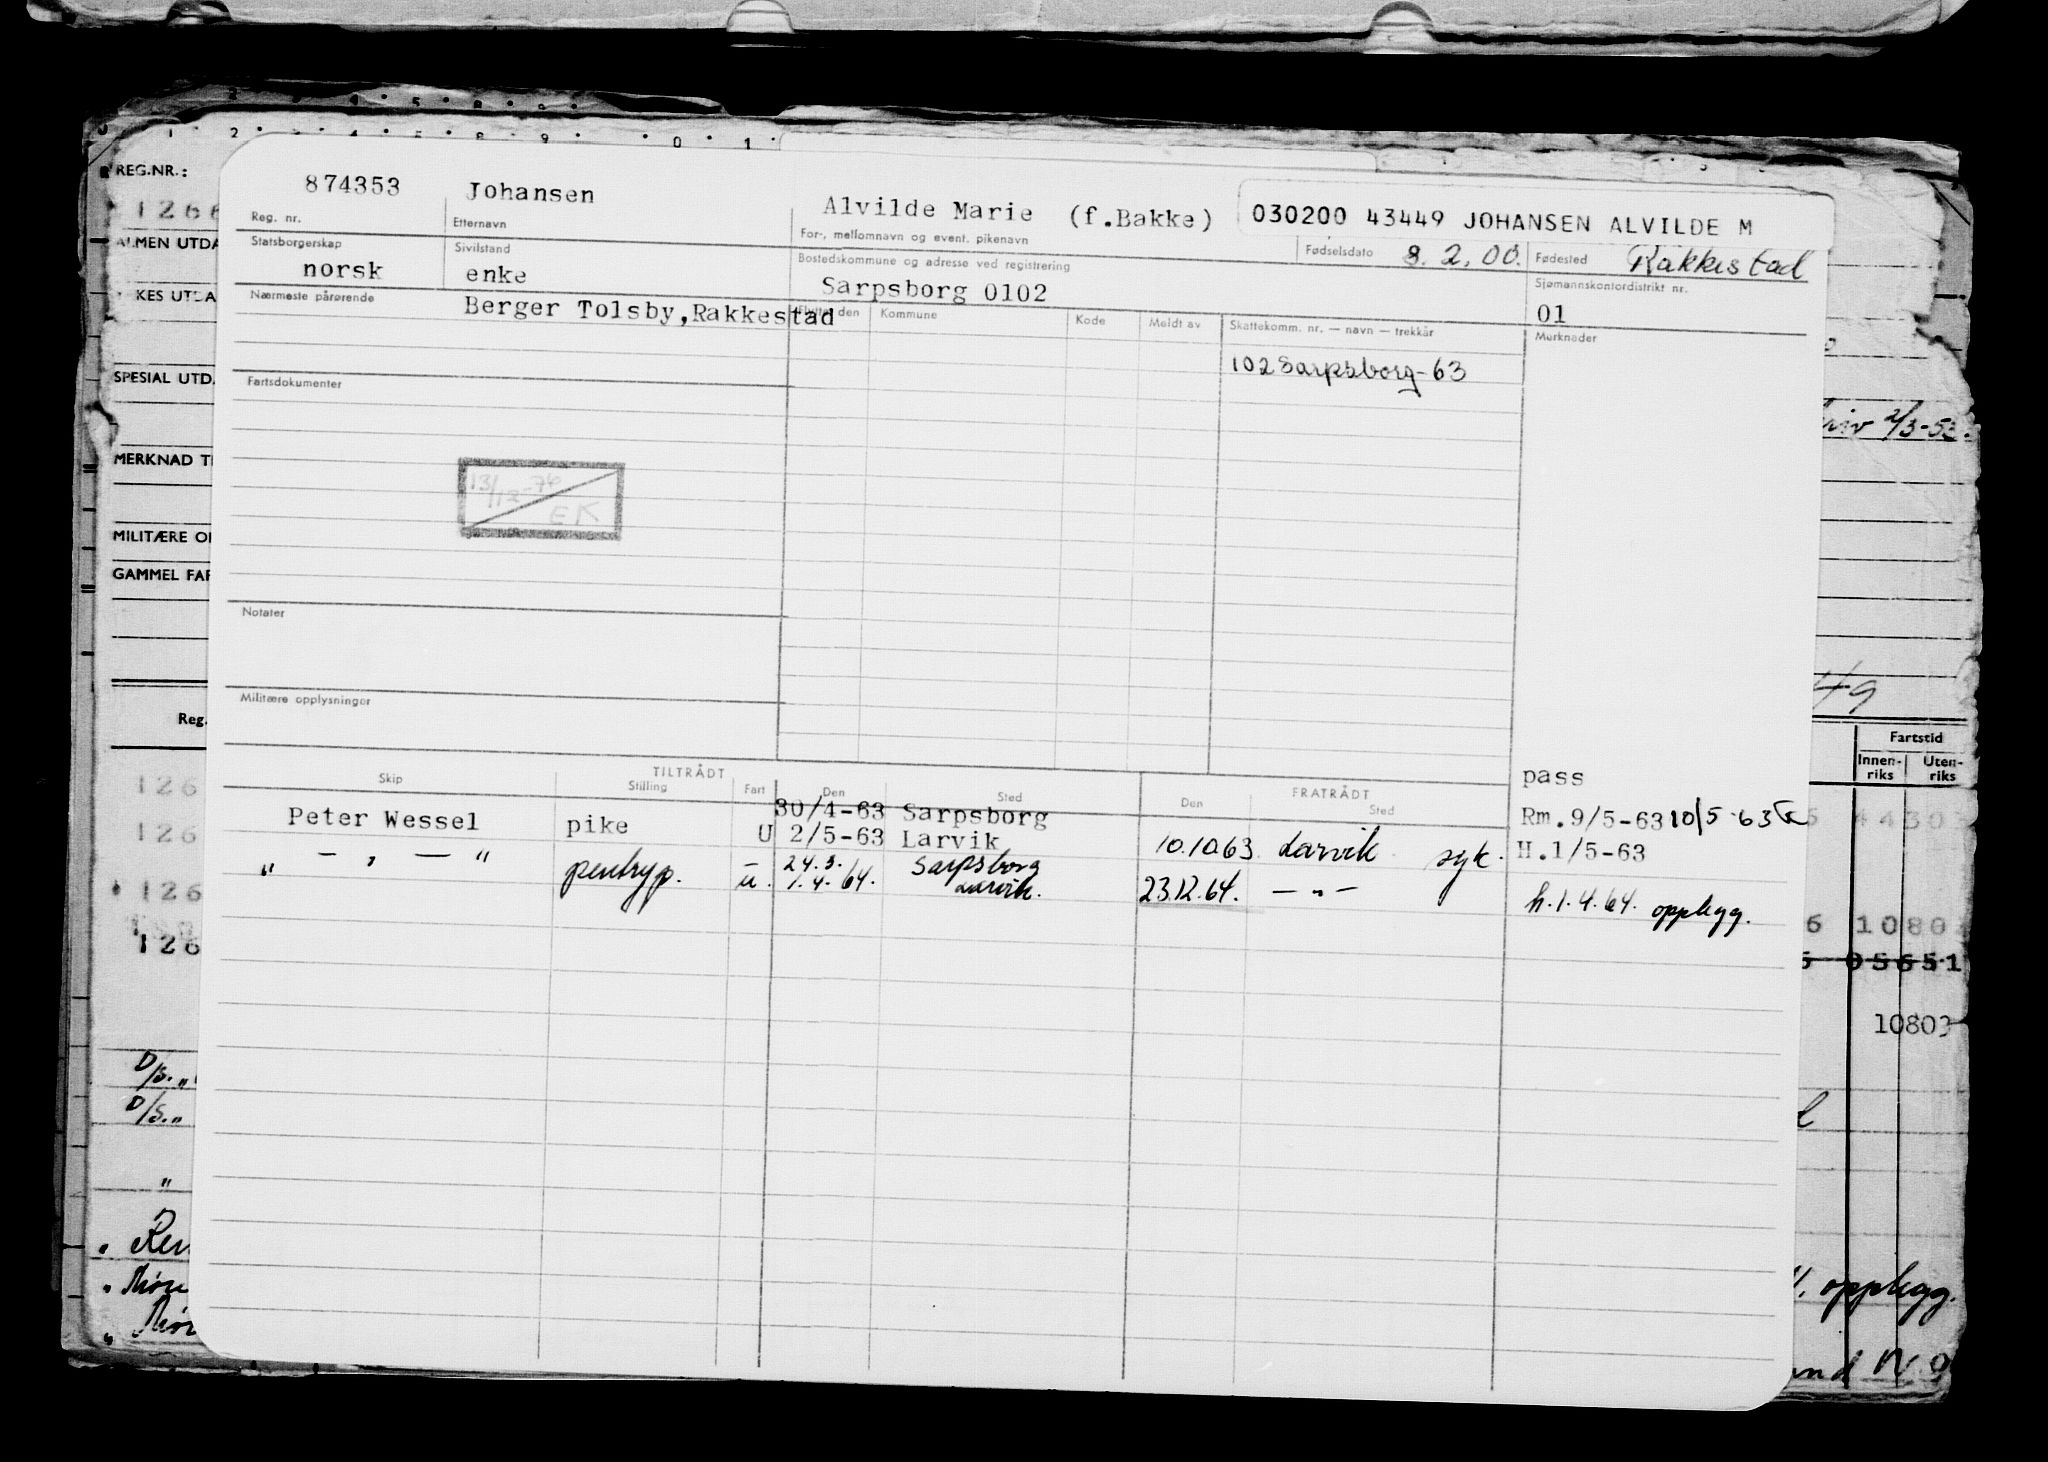 REG.NR.:
1266
ALMEN UTDA
KES UTDA
SPESIAL UTD.
MERKNAD T
MILITÆRE O
GAMMEL FAR
Reg.
874353 Johansen Alvilde Marie (f.Bakke) 030200 43449 JOHANSEN ALVILDE M
Reg. nr. Etternavn For-, mellomnavn og event. pikenavn Fødselsdato 8. 2. 00. Fødested Rakkestad
Statsborgerskap Sivilstand Bostedskommune og adresse ved registrering Sjømannskontordistrikt nr.
norsk enke Sarpsborg 0102 01
Nærmeste pårørende Berger Tolsby, Rakkestad
Flyttet den Kommune Kode Meldt av Skattekomm. nr. — navn — trekkår Merknader
102 Sarpsborg-63
Fartsdokumenter
13/12-74
EK
Notater
Militære opplysninger
TILTRÅDT FRATRÅDT
Skip Stilling Fart Den Sted Den Sted
pass
30/4-63 Sarpsborg Rm.9/5-63 10/5-63
Peter Wessel pike U 2/5-63 Larvik 10.10.63 Larvik syk. H.1/5-63
" — , — " pentryp. — 24.3. Sarpsborg
u. 1.4.64. Larvik. 23.12.64. — " — h.1.4.64. oppl.gg.
2/3-53.
49
Fartstid
Innen-riks Uten-riks
126
126
126
126
44303
6 10803
5 05651
10803
D/S. "
D/S. "
"
oppl.gg.